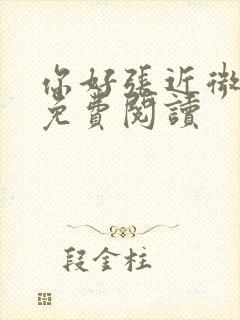 你好張近微
免費閱讀
段金柱